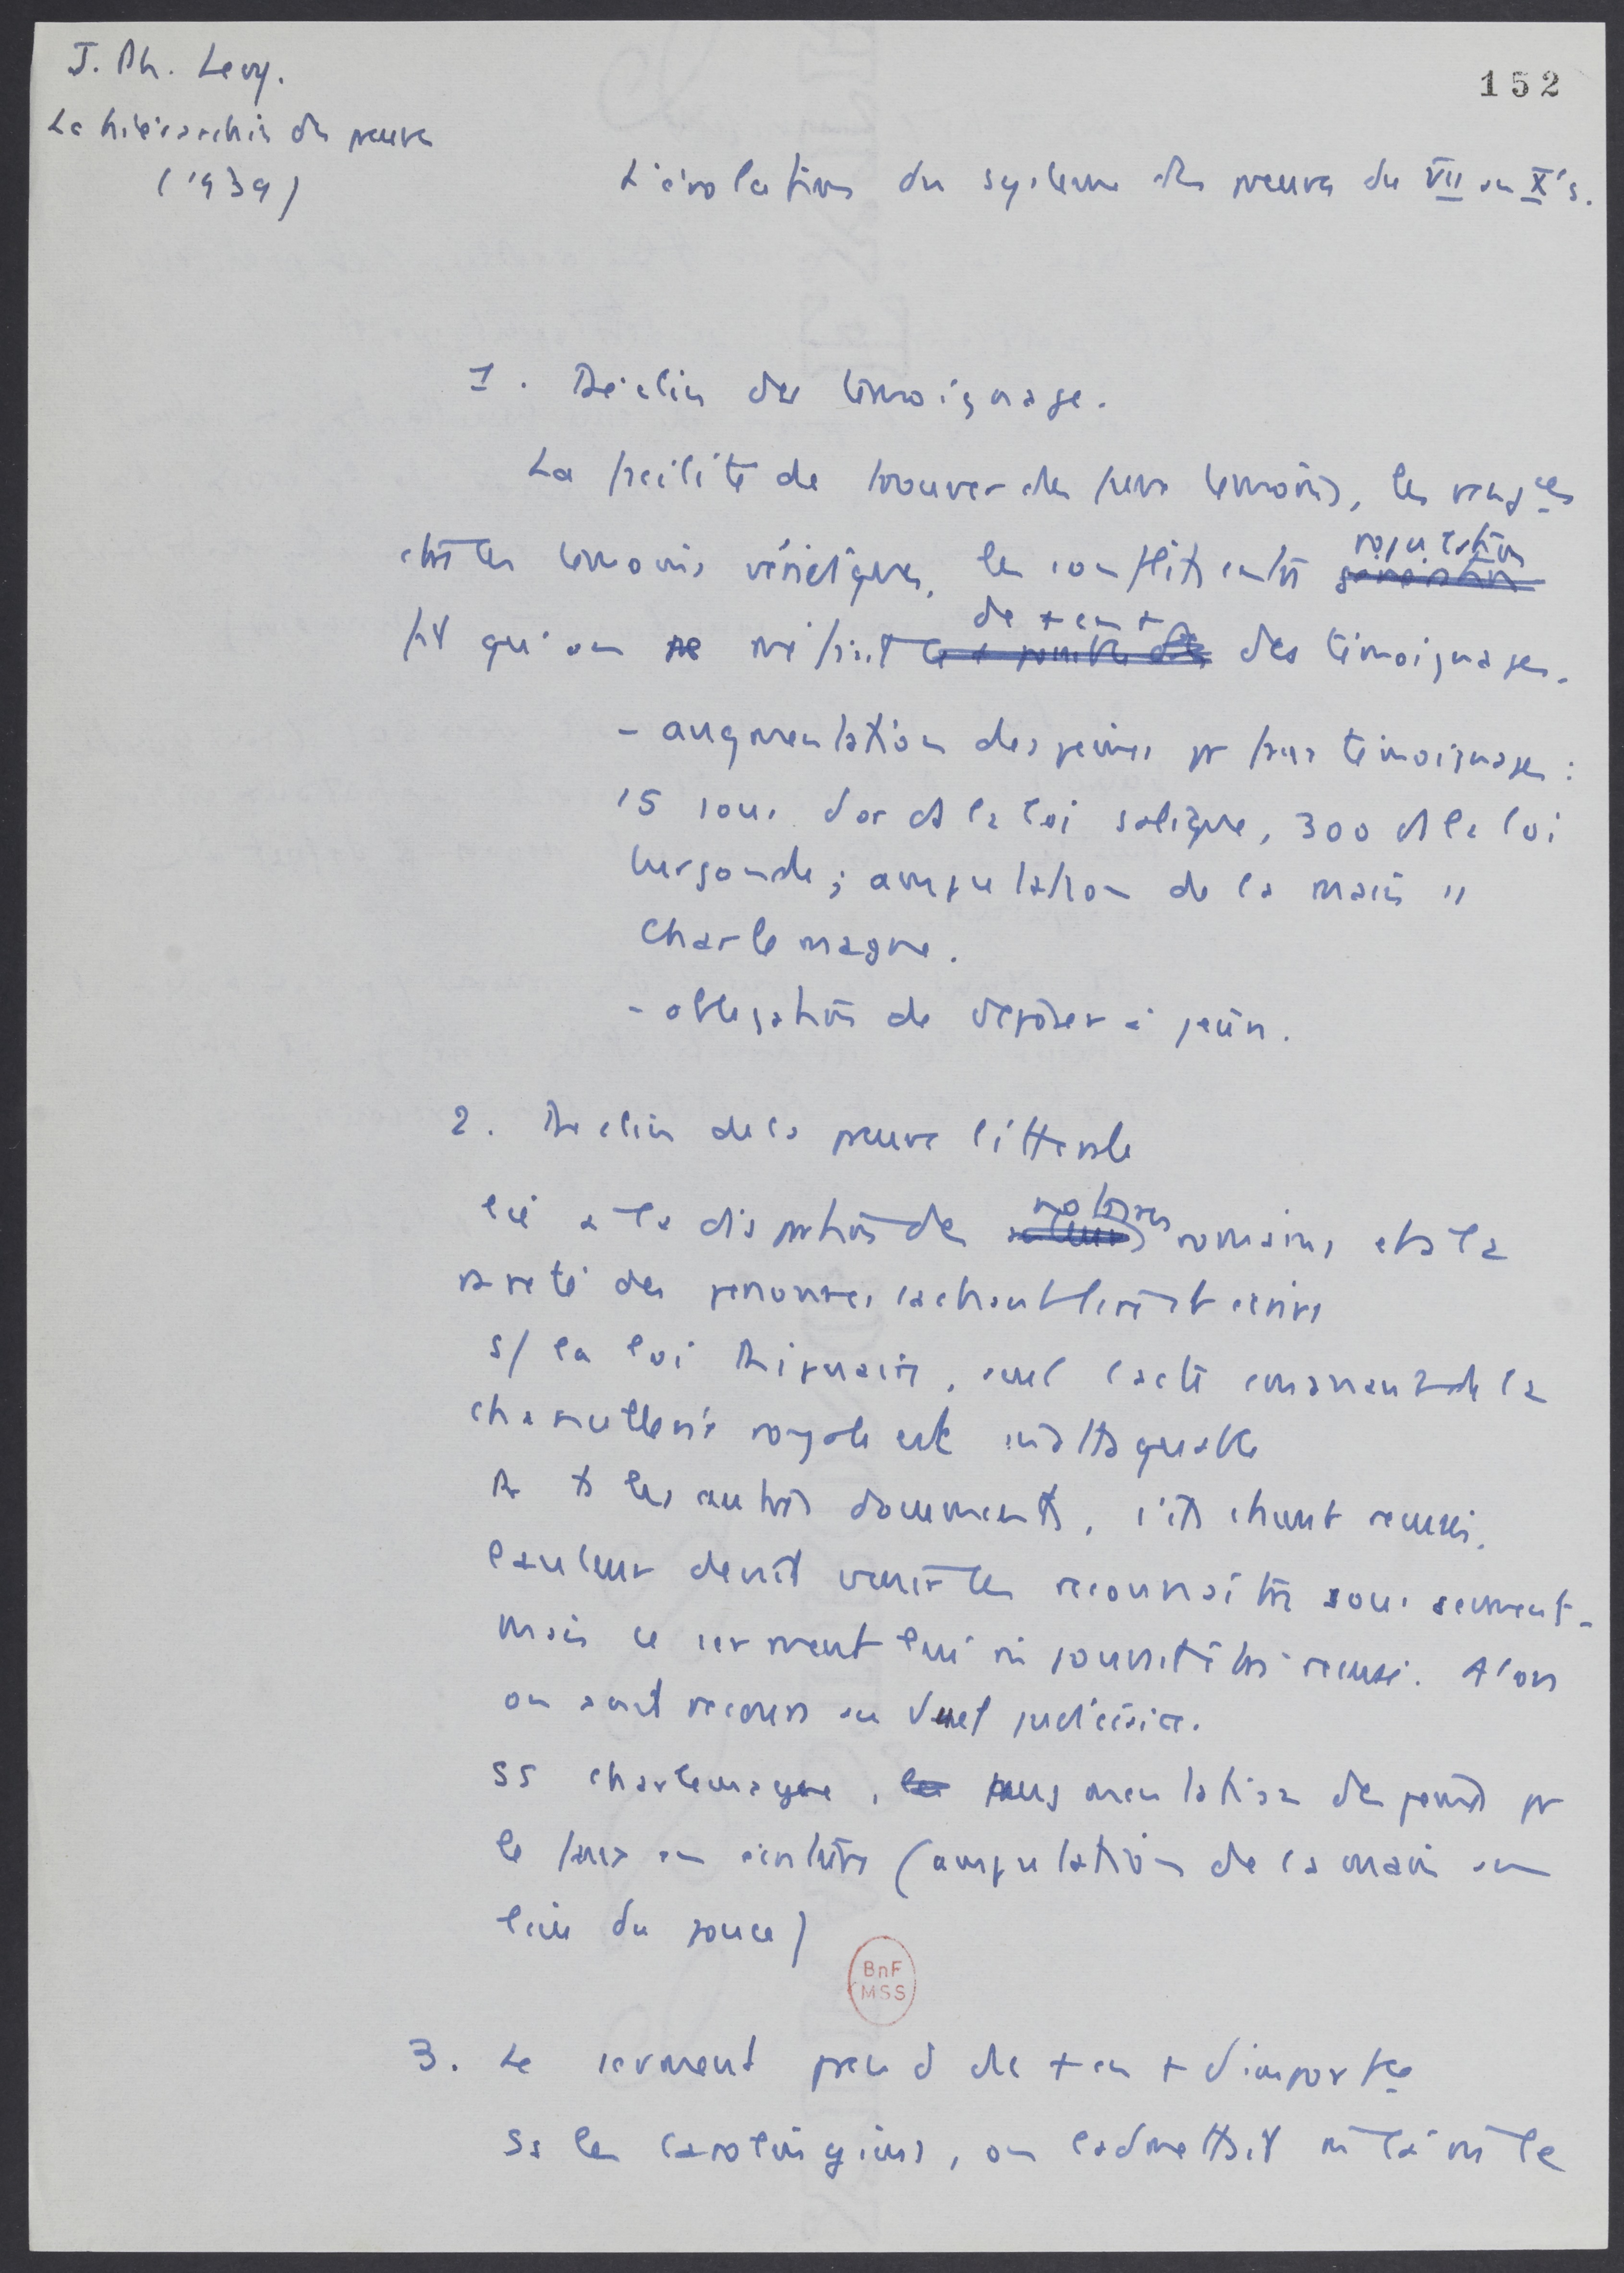 J. Ph. Levy.
La hiérarchie des preuves
(1939)
152
L'évolution du système des preuves du VII au X's.
1. Déclin du témoignage.
La facilité de trouver des faux témoins, les vengces
ctre les témoins véridiques, les conflits entre
fit qu'on se méfiait de + en + des témoignages.
- augmentation des peines pr faux témoignages :
15 sous d'or ds la loi salique, 300 ds la loi
burgonde ; amputation de la main "
Charlemagne.
- obligation de déposer à jeun.
2. Déclin de la preuve littérale
lié à la disparition des notaires romains et à la
rareté des personnes sachant lire et écrire
s/ la loi Ripuaire, seul l'acte émanant de la
chancellerie royale est inattaquable
Pr ts les autres documents, s'ils étaient récusés,
l'auteur devait venir les reconnaître sous serment.
Mais ce serment lui m̂ pouvait être récusé. Alors
on avait recours au duel judiciaire.
ss Charlemagne, augmentation des peines pr
le faux en écriture (amputation de la main au
lieu du pouce)
BnF
MSS
3. Le serment prend de + en + d'importce
Ss les Carolingiens, on l'admettait